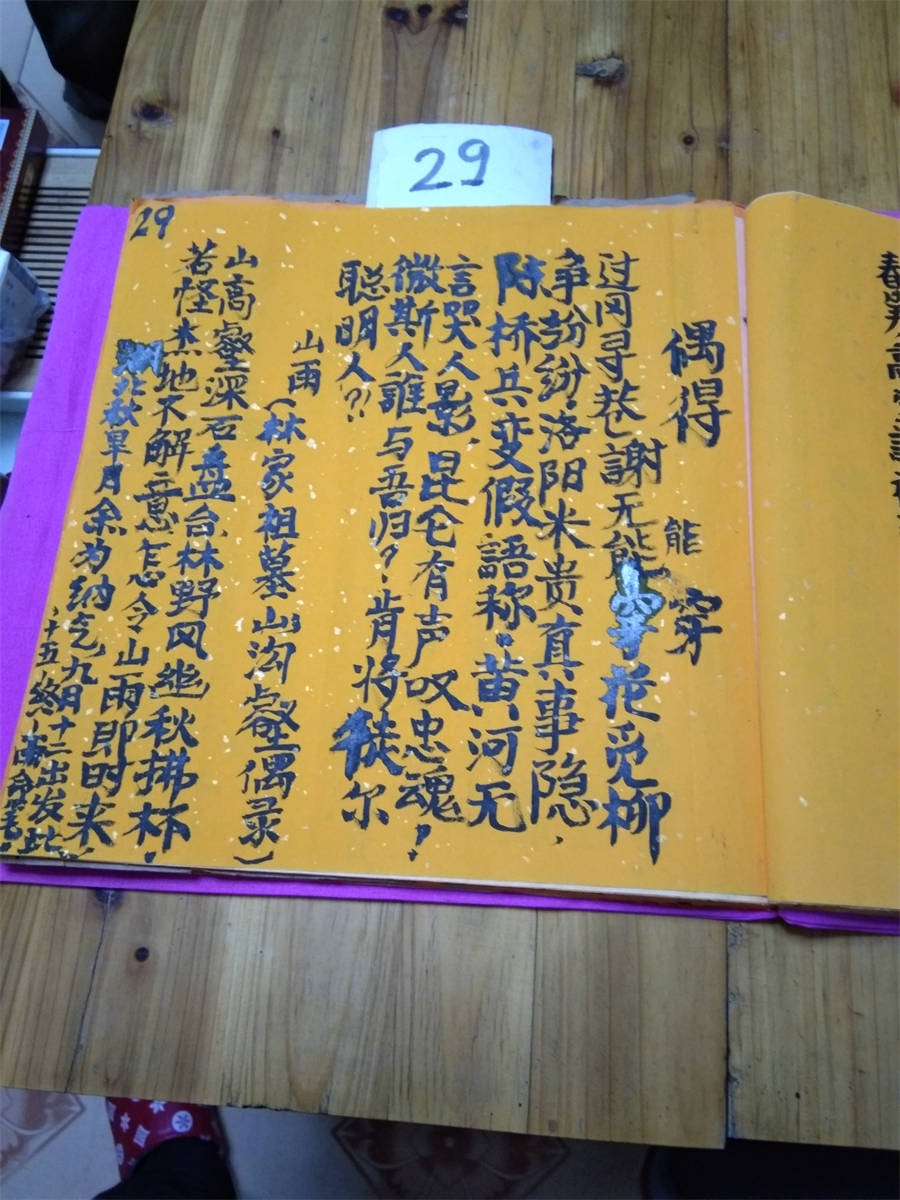 29
29
偶得
能
穿
过冈寻巷謝无能穿花觅柳
争纷纷洛阳米贵真事隐,
陈桥兵变假語称。黄河无
言哭人影,昆仑有声叹忠魂!
微斯人誰与吾归?肯将
聪明人??
尔
山雨
(林家祖墓山沟壑偶录)
山高壑深石盘台林野风
秋拂杯。
若怪
地不解意怎令山雨即时来。
秋皋月余为纳
九月十二出发
、十五终